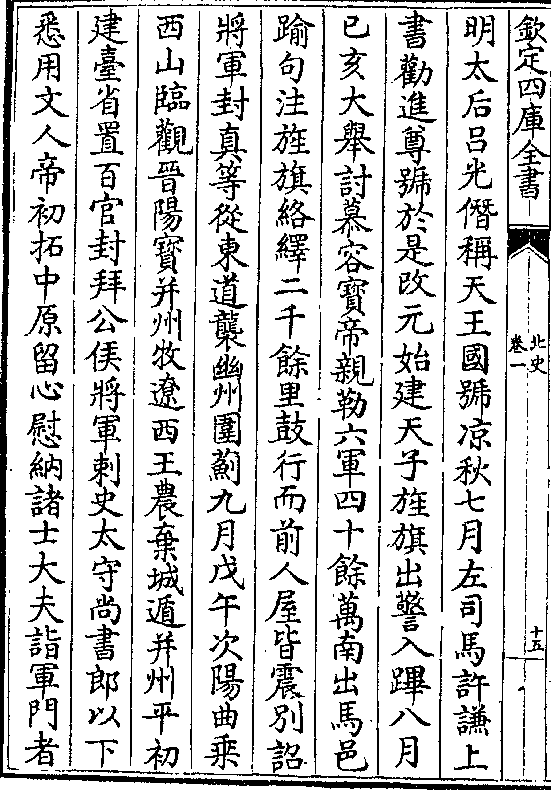 欽定四庫全書
北史
卷一
十五
明太后吕光僭稱天王國號凉秋七月左司馬許謙上
書勸進尊號於是改元始建天子旌旗出警入蹕八月
已亥大舉討慕容寳帝親勒六軍四十餘萬南出馬邑
踰句注旌旗絡繹二千餘里鼓行而前人屋皆震别詔
將軍封真等從東道襲幽州圍薊九月戊午次陽曲乗
西山臨觀晉陽寳并州牧遼西王農棄城遁并州平初
建臺省置百官封拜公侯將軍刺史太守尚書郎以下
悉用文人帝初拓中原留心慰納諸士大夫詣軍門者